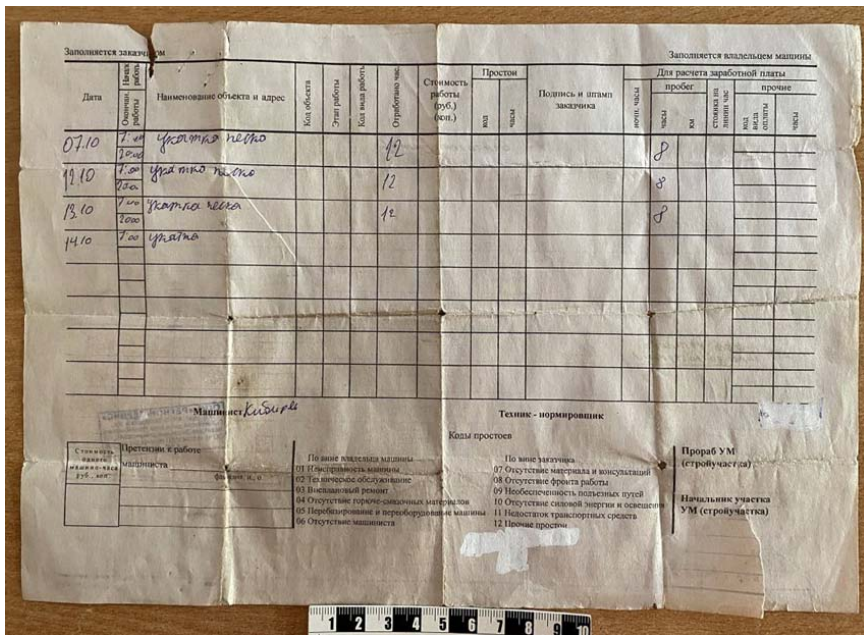 Заполняется заказчиком
Заполняется владельцем машины
Дата
Начал работы
Окончан. работы
Наименование объекта и адрес
Код объекта
Этап работы
Код вида работы
Отработано час.
Стоимость работы (руб.) (коп.)
Простои
код
часы
Подпись и штамп заказчика
Для расчета заработной платы
ночн. часы
пробег
часы
км
стоянка на линии час
прочие
код вида оплаты
часы
07.10 7:00 укатка песко 12 8
20:00
12.10 7:00 укатко песко 12 8
13.10 7:00 укатка песка 12 8
2000
14.10 7:00 укатка
Машинист
Техник - нормировщик
Стоимость одного машино-часа руб., коп.
Претензии к работе машиниста
Коды простоев
По вине владельца машины
01 Неисправность машины
02 Техническое обслуживание
03 Внеплановый ремонт
04 Отсутствие горюче-смазочных материалов
05 Перебазирование и переоборудование машины
06 Отсутствие машиниста
По вине заказчика
07 Отсутствие материала и консультаций
08 Отсутствие фронта работы
09 Необеспеченность подъезных путей
10 Отсутствие силовой энергии и освещения
11 Недостаток транспортных средств
12 Прочие простои
Прораб УМ
(стройучастка)
Начальник участка
УМ (стройучастка)
1 2 3 4 5 6 7 8 9 10